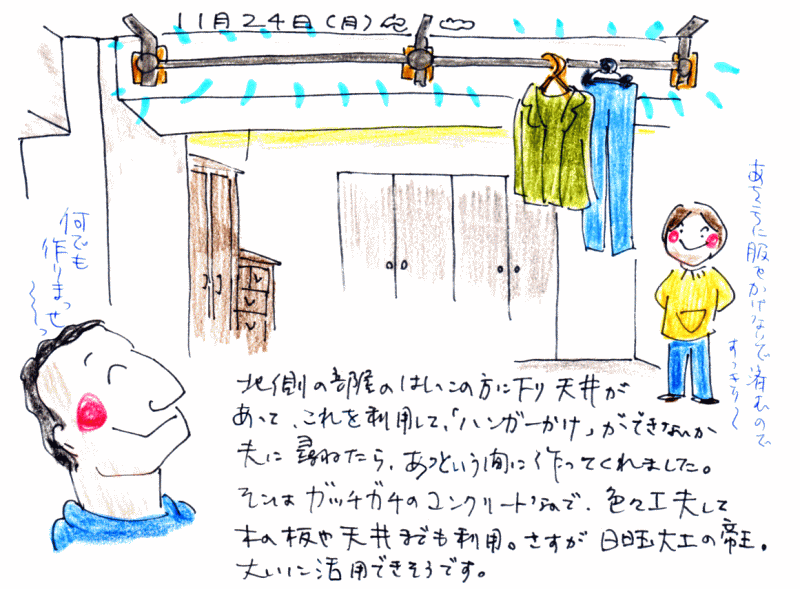 11月24日(月)
何でも
作りまっせ
〜〜っ
あちこちに服をかけないで済むので
すっきり〜
北側の部屋のはしっこの方に下り天井が
あって、これを利用して、「ハンガーかけ」ができないか
夫に尋ねたら、あっという間に作ってくれました。
そこはガッチガチのコンクリートなので、色々工夫して
木の板や天井までも利用。さすが日曜大工の帝王。
大いに活用できそうです。